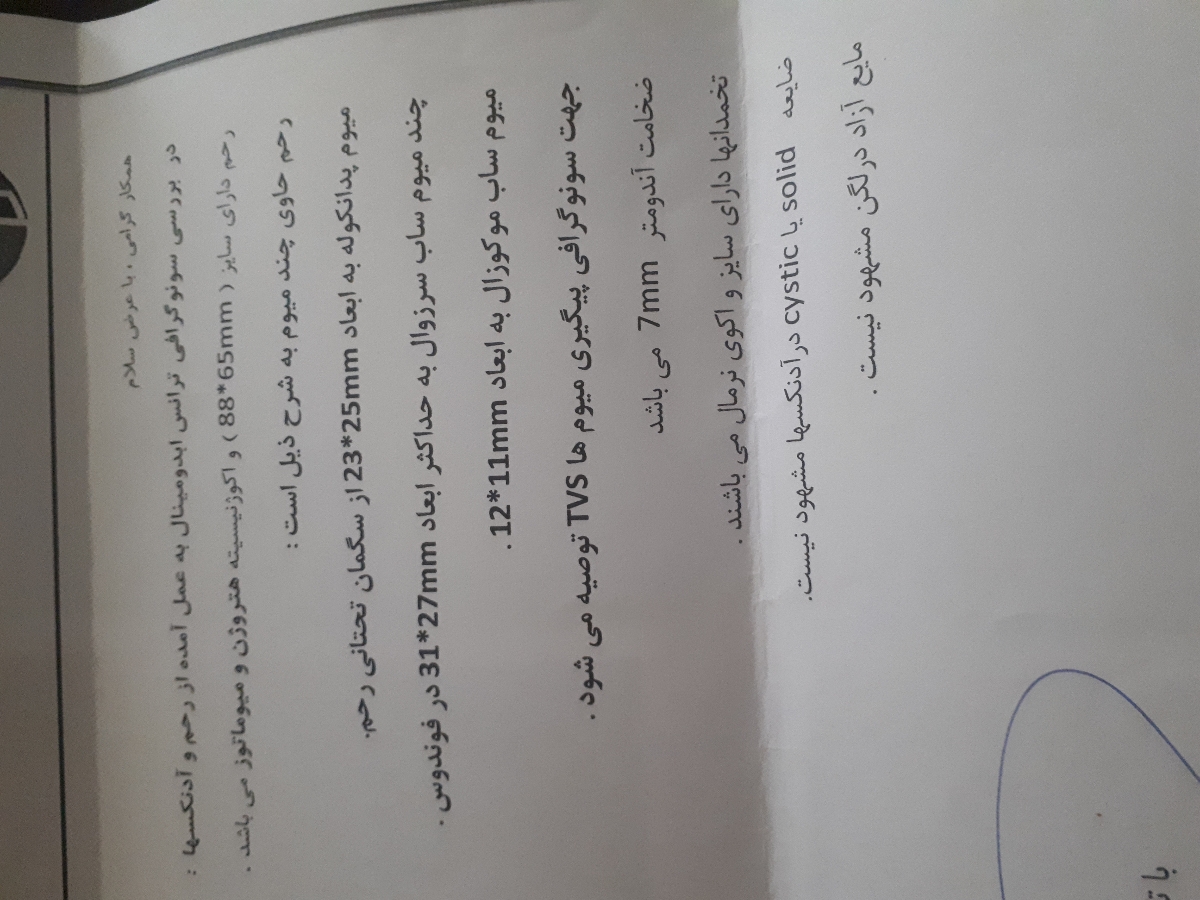 همکار گرامی ، با عرض سلام
در بررسی سونوگرافی ترانس ابدومینال به عمل آمده از رحم و آدنکسها :
رحم دارای سایز ( 88*65mm ) و اکوژنیسیته هتروژن و میوماتوز می باشد .
رحم حاوی چند میوم به شرح ذیل است :
میوم پدانکوله به ابعاد 23*25mm از سگمان تحتانی رحم.
چند میوم ساب سرزوال به حداکثر ابعاد 31*27mm در فوندوس .
میوم ساب موکوزال به ابعاد 12*11mm .
جهت سونوگرافی پیگیری میوم ها TVS توصیه می شود .
ضخامت آندومتر 7mm می باشد
تخمدانها دارای سایز و اکوی نرمال می باشند .
ضایعه solid یا cystic درآدنکسها مشهود نیست.
مایع آزاد درلگن مشهود نیست .